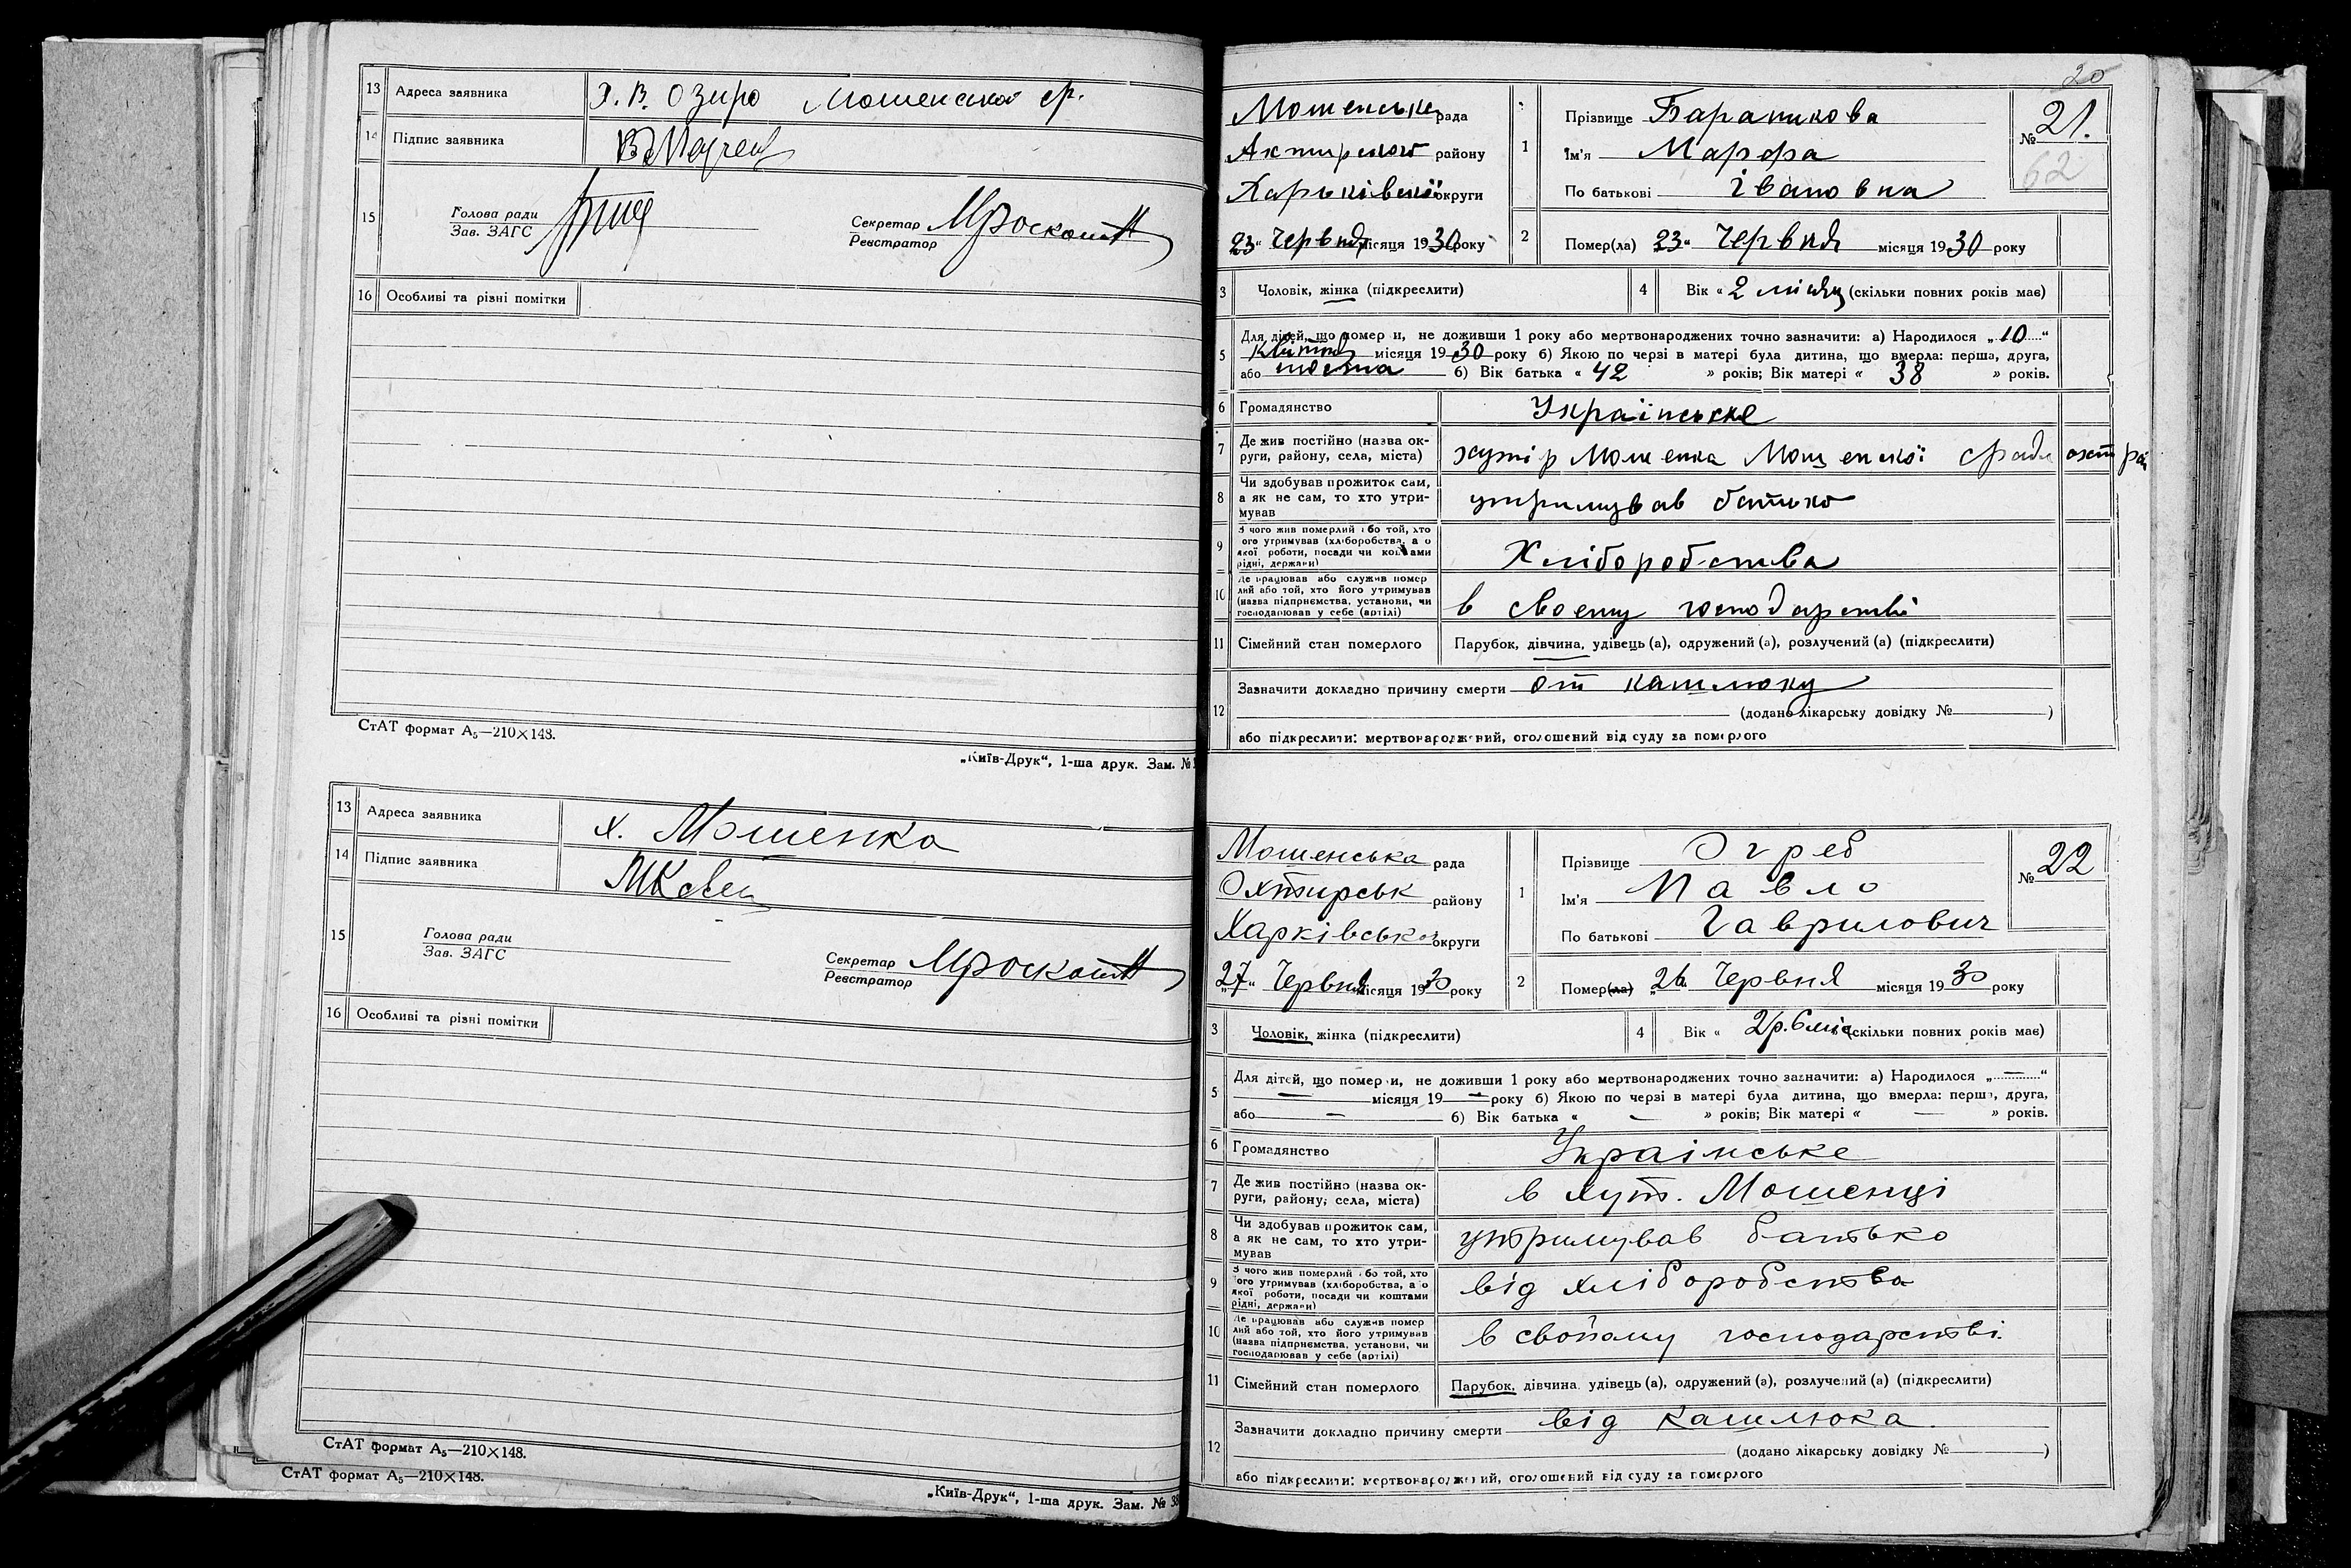 13 Адреса заявника Х. В. Озиро Мошенської ср.
14 Підпис заявника
15 Голова ради
Зав. ЗАГС
Секретар
Реєстратор
16 Особливі та різні помітки
СтАТ формат А₅—210×148.
„Київ-Друк“, 1-ша друк. Зам. №
13 Адреса заявника х. Мошенка
14 Підпис заявника
15 Голова ради
Зав. ЗАГС
Секретар
Реєстратор
16 Особливі та різні помітки
СтАТ формат А₅—210×148.
СтАТ формат А₅—210×148.
„Київ-Друк“, 1-ша друк. Зам. № 38
20
Мошенське рада
Актирского району
Харьківскої округи
23“ Червня місяця 1930 року
1 Прізвище Бараникова
Ім'я Марфа
По батькові Івановна
№ 21.
62
2 Помер(ла) 23“ Червня місяця 1930 року
3 Чоловік, жінка (підкреслити)
4 Вік « 2 місяц (скільки повних років має)
5 Для дітей, що померли, не доживши 1 року або мертвонароджених точно зазначити: а) Народилося „10“
Квітня місяця 1930 року б) Якою по черзі в матері була дитина, що вмерла: перша, друга,
або шоста б) Вік батька « 42 » років; Вік матері « 38 » років.
6 Громадянство Українське
7 Де жив постійно (назва ок-
руги, району, села, міста) хутір Мошенка Мошенскої сради охт рай
8 Чи здобував прожиток сам,
а як не сам, то хто утри-
мував утримував батько
9 З чого жив померлий або той, хто
його утримував (хліборобства, або
якої роботи, посади чи коштами
рідні, держави) Хліборобства
10 Де працював або служив помер
лий або той, хто його утримував
(назва підприємства, установи, чи
господарював у себе (артілі) в своему господарстві
11 Сімейний стан померлого Парубок, дівчина, удівець (а), одружений (а), розлучений (а) (підкреслити)
12 Зазначити докладно причину смерти от кашлюку
(додано лікарську довідку № )
або підкреслити: мертвонароджений, оголошений від суду за померлого
Мошенська рада
Охтирськ району
Харківської округи
„27“ Червня місяця 1930 року
1 Прізвище Огреб
Ім'я Павло
По батькові Гаврилович
№ 22
2 Помер(ла) „26 Червня місяця 1930 року
3 Чоловік, жінка (підкреслити)
4 Вік « 2р. 6 міс (скільки повних років має)
5 Для дітей, що померли, не доживши 1 року або мертвонароджених точно зазначити: а) Народилося „—“
— місяця 19— року б) Якою по черзі в матері була дитина, що вмерла: перша, друга,
або — б) Вік батька « — » років; Вік матері « — » років.
6 Громадянство Українське
7 Де жив постійно (назва ок-
руги, району, села, міста) в хут. Мошенці
8 Чи здобував прожиток сам,
а як не сам, то хто утри-
мував утримував батько
9 З чого жив померлий або той, хто
його утримував (хліборобства, або
якої роботи, посади чи коштами
рідні, держави) від хліборобства
10 Де працював або служив помер
лий або той, хто його утримував
(назва підприємства, установи, чи
господарював у себе (артілі) в свойому господарстві.
11 Сімейний стан померлого Парубок, дівчина, удівець (а), одружений (а), розлучений (а) (підкреслити)
12 Зазначити докладно причину смерти від кашлюка.
(додано лікарську довідку № )
або підкреслити: мертвонароджений, оголошений від суду за померлого